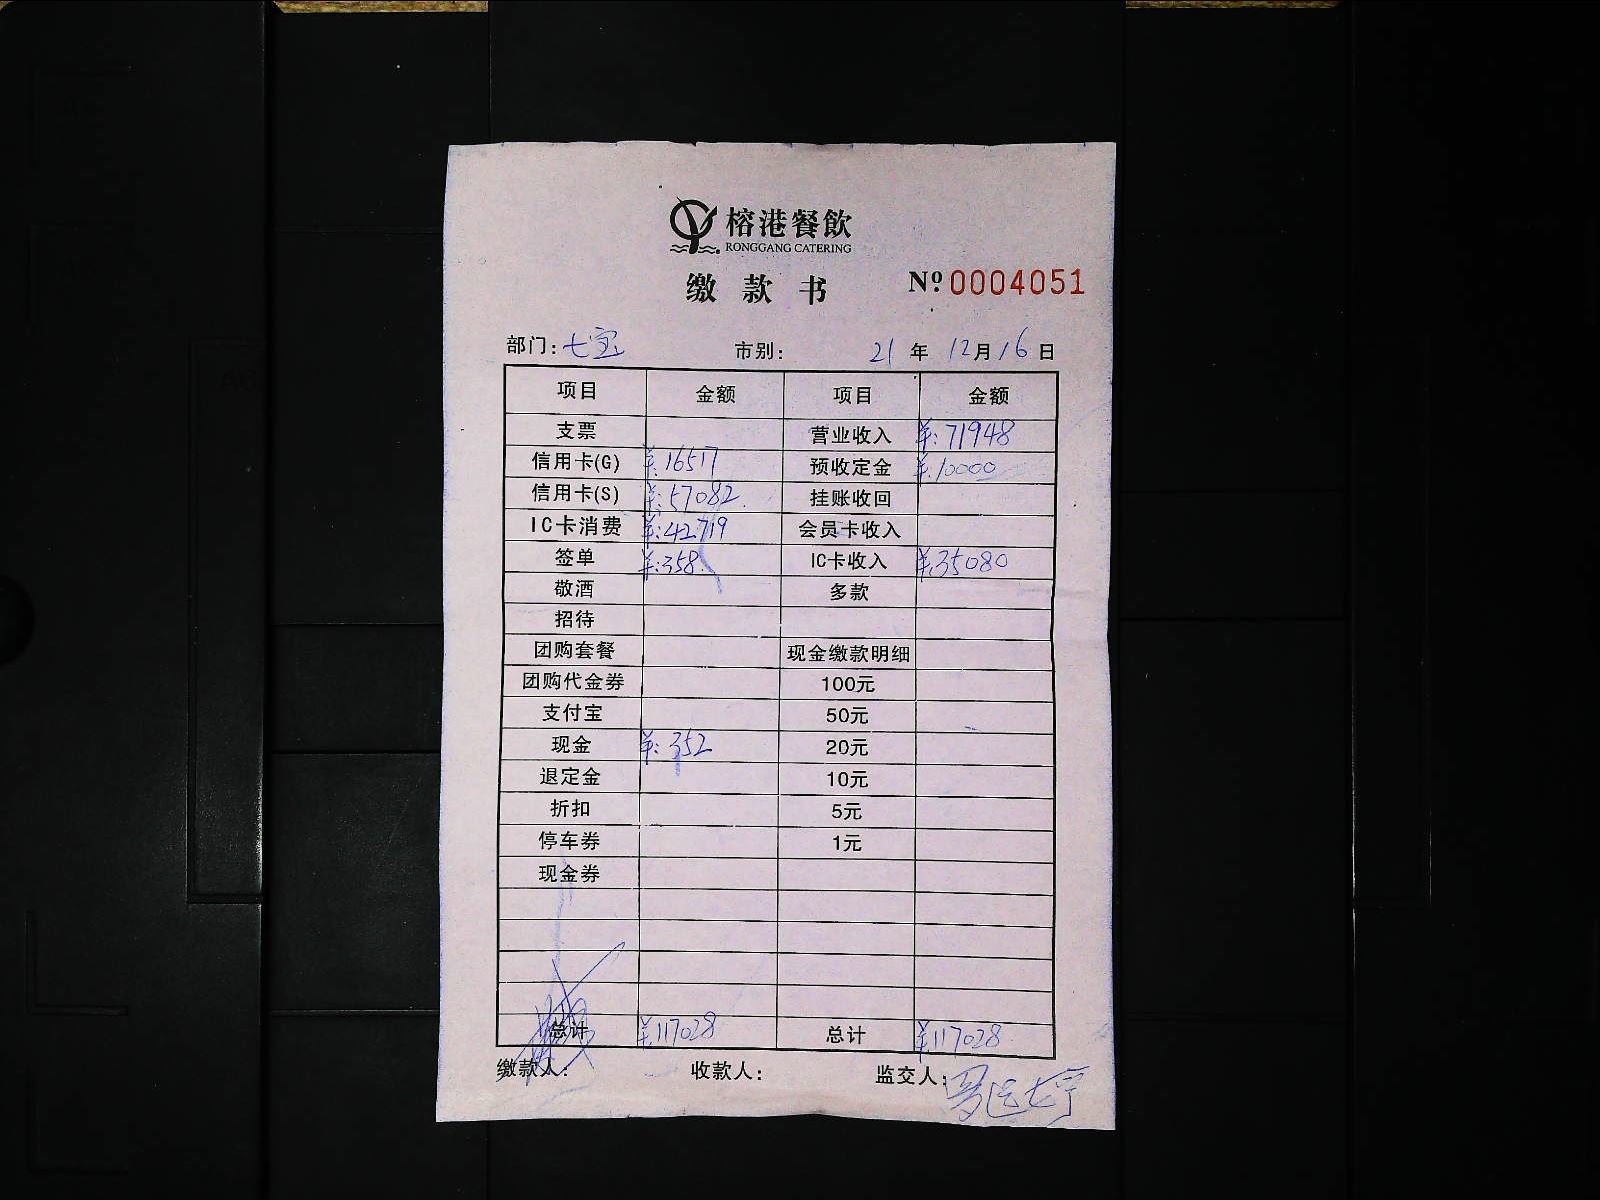 榕港餐飲
RONGGANG CATERING
缴款书 Nº 0004051
部门:七宝 市别: 21年 12月16日
项目 金额 项目 金额
支票 营业收入 ¥:71948
信用卡(G) ¥:16517 预收定金 ¥:10000
信用卡(S) ¥:57082 挂账收回
IC卡消费 ¥:42719 会员卡收入
签单 ¥:358 IC卡收入 ¥:35080
敬酒 多款
招待
团购套餐 现金缴款明细
团购代金券 100元
支付宝 50元
现金 ¥:352 20元
退定金 10元
折扣 5元
停车券 1元
现金券
总计 ¥:117028 总计 ¥:117028
缴款人: 收款人: 监交人: